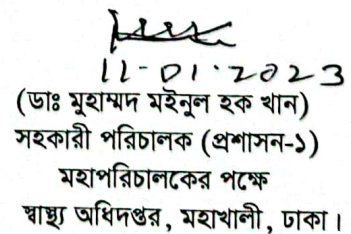 11-01-2023
(ডাঃ মুহাম্মদ মইনুল হক খান)
সহকারী পরিচালক (প্রশাসন-১)
মহাপরিচালকের পক্ষে
স্বাস্থ্য অধিদপ্তর, মহাখালী, ঢাকা।